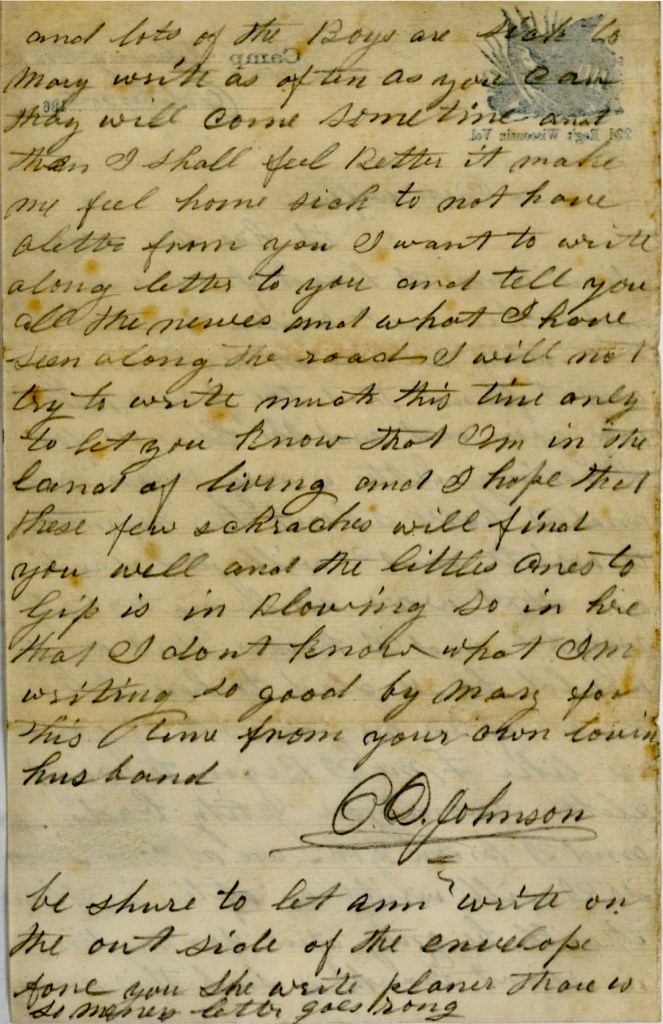 and lots of the Boys are sick to
Mary write as often as you can
Camp
186
thay will come sometine and
22d Reg't Wisconsin Vol.
then I shall feel Better it make
me feel home sick to not have
a letter from you I want to write
along letter to you and tell you
all the newes and what I have
seen along the road I will not
try to write much this time only
to let you know that I'm in the
land of living and I hope that
these few sckraches will find
you well and the littles ones to
Gip is in Blowing so in here
that I don't know what I'm
writing so good by Mary for
this Time from your own lovin
husband
O. D. Johnson
be shure to let ann write on
the out side of the envelope
fore you She write planer than
so meney letter goes rong